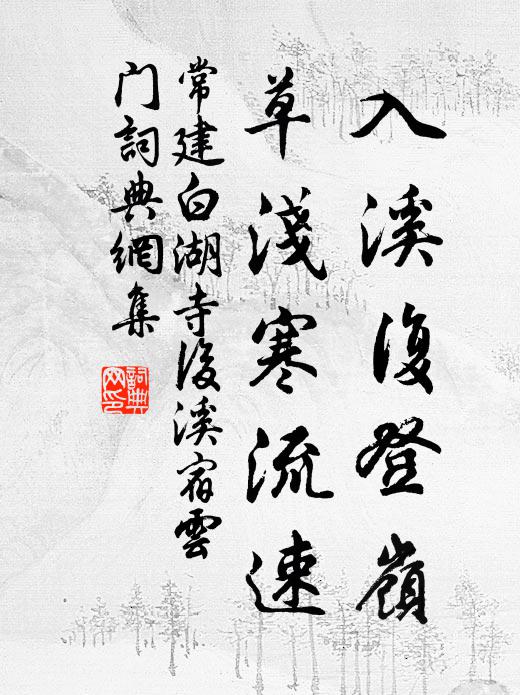 入溪復登嶺
草淺寒流速
常建白湖寺後溪宿雲
门詞典網集
詞典
网印